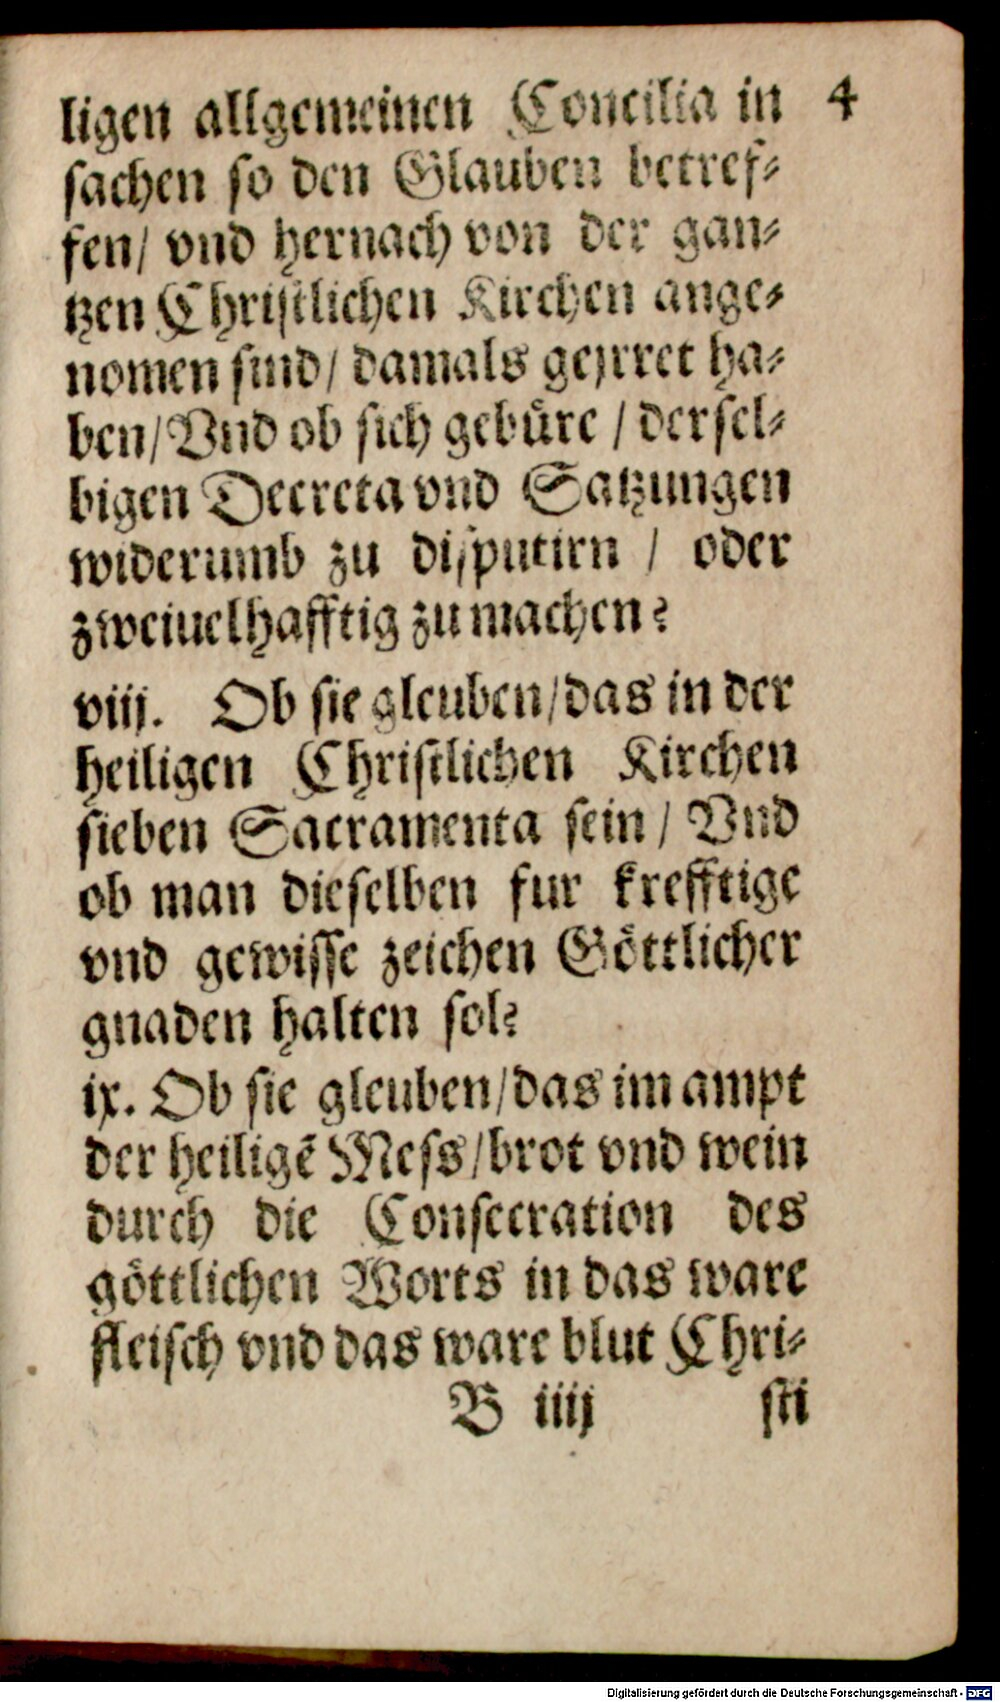 ligen allgemeinen Concilia in 4
sachen so den Glauben betref⸗
fen/ vnd hernach von der gan⸗
tzen Christlichen Kirchen ange⸗
nomen sind/ damals gejrret ha⸗
ben/ Vnd ob sich gebüre / dersel⸗
bigen Decreta vnd Satzungen
widerumb zu disputirn / oder
zweiuelhafftig zu machen?
viij. Ob sie gleuben/ das in der
heiligen Christlichen Kirchen
sieben Sacramenta sein/ Vnd
ob man dieselben fur krefftige
vnd gewisse zeichen Göttlicher
gnaden halten sol?
ix. Ob sie gleuben/ das im ampt
der heiligẽ Mess/ brot vnd wein
durch die Consecration des
göttlichen Worts in das ware
fleisch vnd das ware blut Chri⸗
B iiij sti
Digitalisierung gefördert durch die Deutsche Forschungsgemeinschaft - DFG